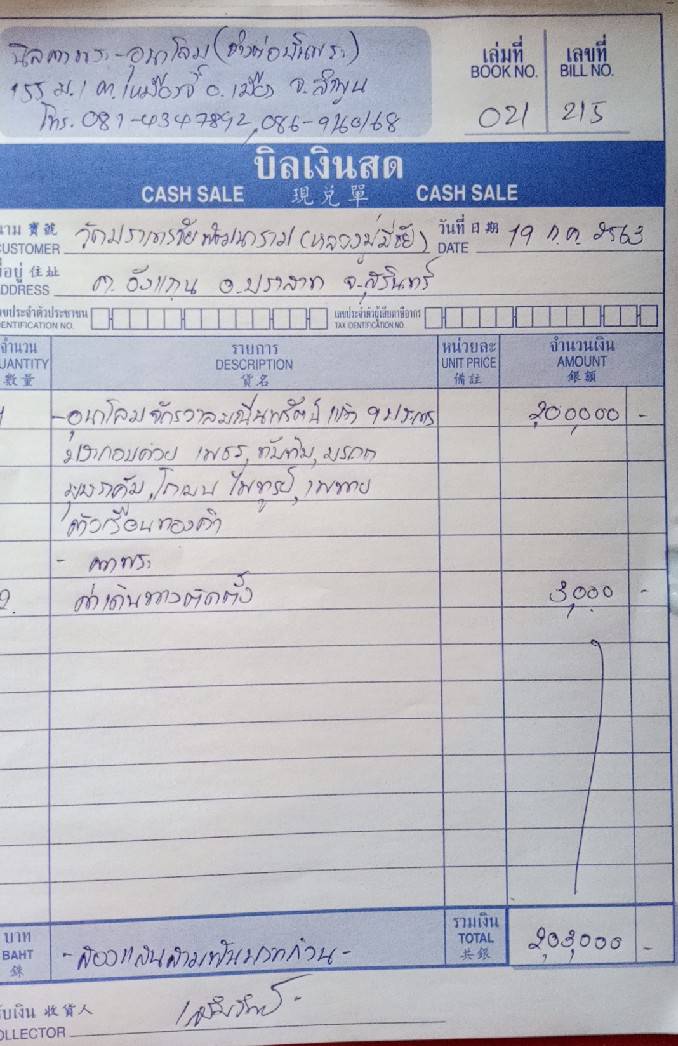 นิลตาพระ-อุนาโลม (ช่างต่อมุกพระ)
155 ม.1 ต.เหมืองจี้ อ.เมือง จ.ลำพูน
โทร. 081-4347892, 086-9160168
เล่มที่ เลขที่
BOOK NO. BILL NO.
021 215
บิลเงินสด
CASH SALE 現兌單 CASH SALE
นาม 寶號 วัดปราสาทชัยพัฒนาราม (หลวงปู่มีชัย) วันที่ 日期 19 ก.ค. 2563
CUSTOMER DATE
ที่อยู่ 住址 ต. อ.ปราสาท จ.สุรินทร์
ADDRESS
เลขประจำตัวประชาชน เลขประจำตัวผู้เสียภาษีอากร
IDENTIFICATION NO. TAX IDENTIFICATION NO.
จำนวน รายการ หน่วยละ จำนวนเงิน
QUANTITY DESCRIPTION UNIT PRICE AMOUNT
數量 貨名 備註 銀額
1 -อุนาโลม 200,000 -
ประกอบด้วย เพชร, ทับทิม, มรกต
ไพฑูรย์, เพทาย
ตัวเรือนทองคำ
- ตาพระ
2. ค่าเดินทางติดตั้ง 3,000 -
บาท รวมเงิน
BAHT -สองแสนสามพันบาทถ้วน- TOTAL 203,000 -
銖 共銀
รับเงิน 收貨人
COLLECTOR